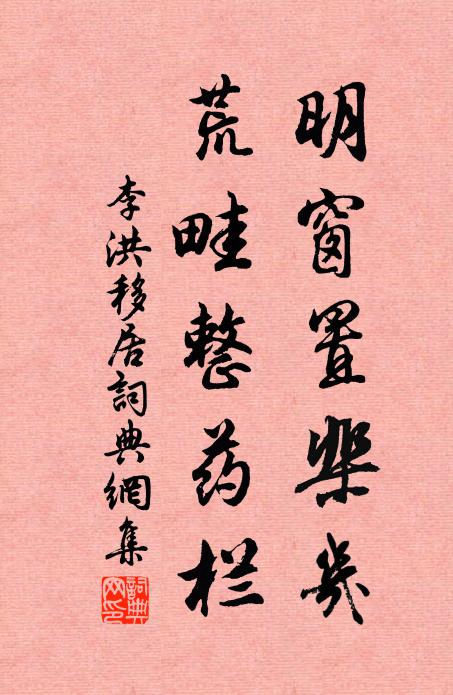 明窗置棐幾
荒畦整药栏
李洪移居詞典網集
詞典
网印